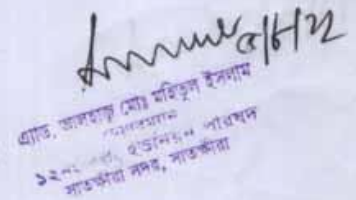 ৫/৬/২২
এ্যাড. আলহাজ্ব মোঃ মহিতুল ইসলাম
চেয়ারম্যান
১২নং ইউনিয়ন পরিষদ
সাতক্ষীরা সদর, সাতক্ষীরা